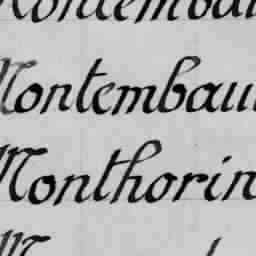 Montembau
Montembau
Monthorin